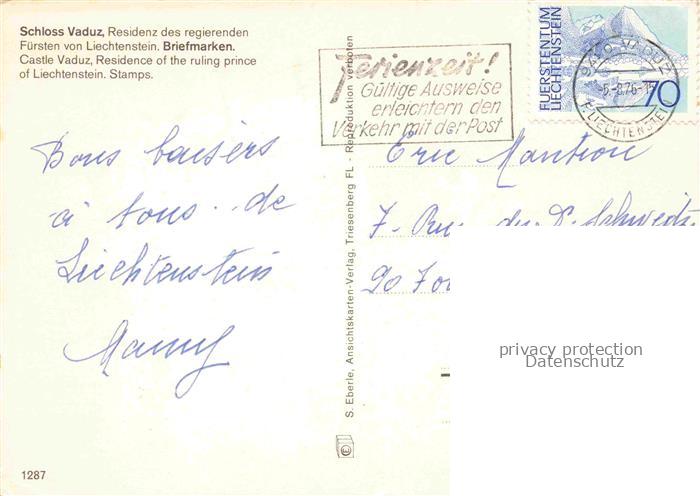 Schloss Vaduz, Residenz des regierenden
Fürsten von Liechtenstein. Briefmarken.
Castle Vaduz, Residence of the ruling prince
of Liechtenstein. Stamps.
Ferienzeit!
Gültige Ausweise
erleichtern den
Verkehr mit der Post
FUERSTENTUM
LIECHTENSTEIN
70
9490 VADUZ
-5.-8.76-15
LIECHTENSTEIN
Bons baisers
à tous de
Liechtenstein
Mamy
S. Eberle, Ansichtskarten-Verlag, Triesenberg FL - Reproduktion verboten
Eric Mantion
7. Rue du Dr
90
privacy protection
Datenschutz
1287